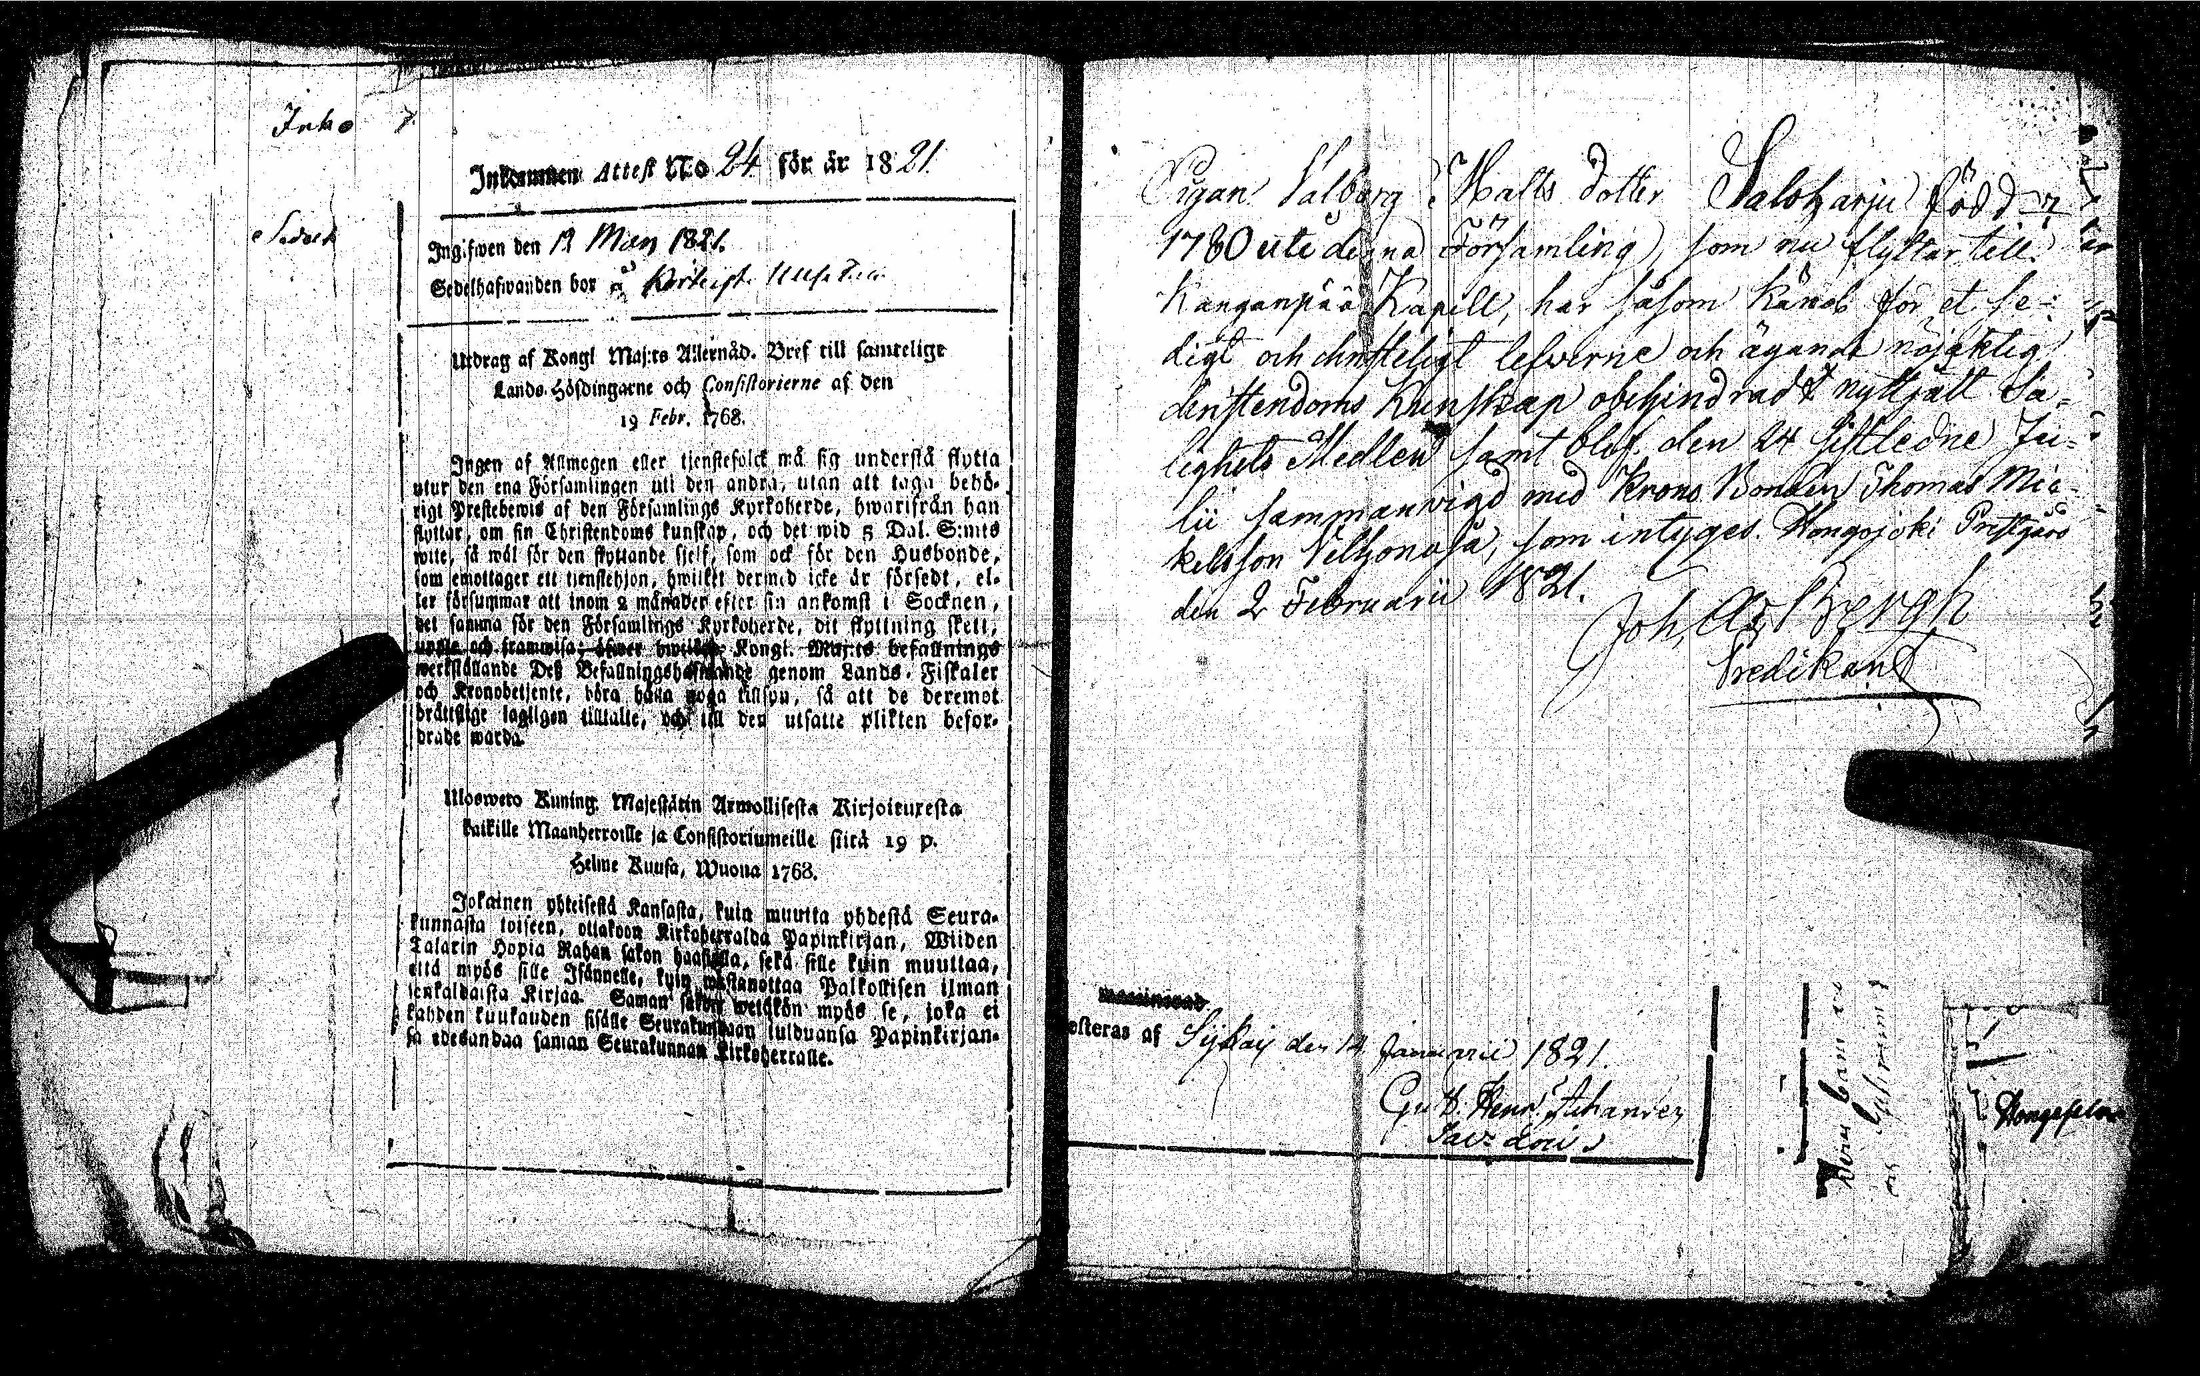 Inkommen Attest No 24 för år 1821.
Ingifwen den 12 Mars 1821.
Sedelhafwanden bor
Utdrag af Kongl Maj:ts Allernåd. Bref till samtelige
Lands-Höfdingarne och Consistorierne af den
19 Febr. 1768.
Ingen af Allmogen eller tjenstefolck må sig understå flytta
utur den ena Församlingen till den andra, utan att taga behö-
rigt Prestebewis af den Församlings Kyrkoherde, hwarifrån han
flyttar, om sin Christendoms kunskap, och det wid 5 Dal. S:mts
wite, så wäl för den flyttande sjelf, som ock för den Husbonde,
som emottager ett tjenstehjon, hwilket dermed icke är försedt, el-
ler försummar att inom 2 månader efter sin ankomst i Socknen,
det samma för den Församlings Kyrkoherde, dit flyttning skett,
upte och framwisa; öfwer hwilken Kongl. Maj:ts befallnings
werkställande Deß Befallningshafwande genom Lands-Fiskaler
och Kronobetjente, böra hålla noga tillsyn, så att de deremot
bråttslige lagligen tilltalte, och till den utsatte plikten befor-
drade warda.
Uloswetto Kuning. Majestätin Armollisesta Kirjoituxesta
kaikille Maanherroille ja Consistoriumeille siitä 19 p.
Helme Kuusa, Wuona 1768.
Jokainen yhteisestä Kansasta, kuin muutta yhdestä Seura-
kunnasta toiseen, ottakoon Kirkoherralda Papinkirjan, Wiiden
Talarin Hopia Rahan sakon haastolla, sekä sille kuin muuttaa,
että myös sille Isännelle, kuin wastanottaa Palkollisen ilman
senkaldaista Kirjaa. Saman sakon wetäkön myös se, joka ei
kahden kuukauden sisälle Seurakundaan tulduansa Papinkirjan-
sa edesandaa saman Seurakunnan Kirkoherralle.
Pigan Valborg Matts dotter Saloharju född
1780 uti denna Församling, som nu flyttar till
Kanganpää Kapell, har såsom känd för et se-
digt och christeligt lefverne och ägande nöjaktig
christendoms Kunskap obehindradt nyttjatt Sa-
lighets Medlen samt blef den 24 sistledne Ju-
lii sammanvigd med Krono Bonden Thomas Mic-
kelsson, som intyges. Hongojoki Prestgård
den 2 Februarii 1821.
Joh. Bergh
Predikant
esteras af den 14 Januarii 1821.